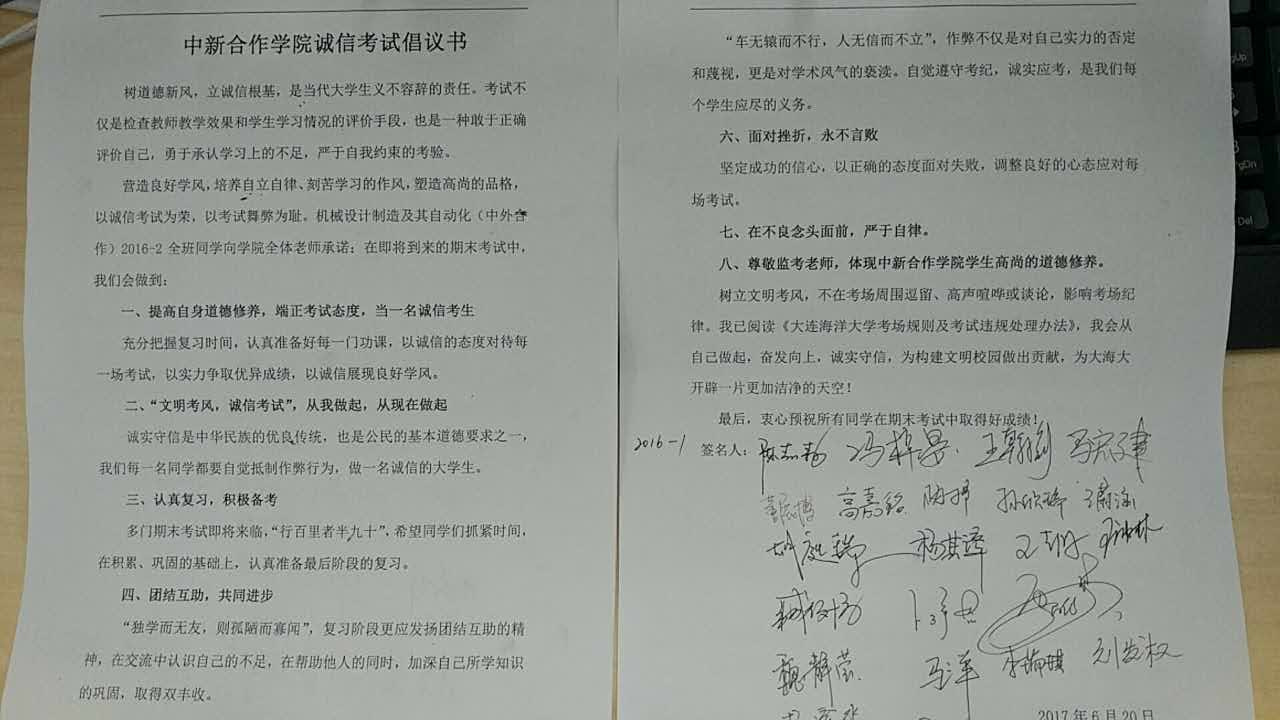 中新合作学院诚信考试倡议书
树道德新风，立诚信根基，是当代大学生义不容辞的责任。考试不
仅是检查教师教学效果和学生学习情况的评价手段，也是一种敢于正确
评价自己，勇于承认学习上的不足，严于自我约束的考验。
营造良好学风，培养自立自律、刻苦学习的作风，塑造高尚的品格，
以诚信考试为荣，以考试舞弊为耻。机械设计制造及其自动化（中外合
作）2016-2 全班同学向学院全体老师承诺：在即将到来的期末考试中，
我们会做到：
一、提高自身道德修养，端正考试态度，当一名诚信考生
充分把握复习时间，认真准备好每一门功课，以诚信的态度对待每
一场考试，以实力争取优异成绩，以诚信展现良好学风。
二、“文明考风，诚信考试”，从我做起，从现在做起
诚实守信是中华民族的优良传统，也是公民的基本道德要求之一，
我们每一名同学都要自觉抵制作弊行为，做一名诚信的大学生。
三、认真复习，积极备考
多门期末考试即将来临，“行百里者半九十”，希望同学们抓紧时间，
在积累、巩固的基础上，认真准备最后阶段的复习。
四、团结互助，共同进步
“独学而无友，则孤陋而寡闻”，复习阶段更应发扬团结互助的精
神，在交流中认识自己的不足，在帮助他人的同时，加深自己所学知识
的巩固，取得双丰收。
“车无辕而不行，人无信而不立”，作弊不仅是对自己实力的否定
和蔑视，更是对学术风气的亵渎。自觉遵守考纪，诚实应考，是我们每
个学生应尽的义务。
六、面对挫折，永不言败
坚定成功的信心，以正确的态度面对失败，调整良好的心态应对每
场考试。
七、在不良念头面前，严于自律。
八、尊敬监考老师，体现中新合作学院学生高尚的道德修养。
树立文明考风，不在考场周围逗留、高声喧哗或谈论，影响考场纪
律。我已阅读《大连海洋大学考场规则及考试违规处理办法》，我会从
自己做起，奋发向上，诚实守信，为构建文明校园做出贡献，为大海大
开辟一片更加洁净的天空！
最后，衷心预祝所有同学在期末考试中取得好成绩！
2016-1 签名人：
高嘉铭
杨淇泽
魏静莹 马洋
2017年6月20日